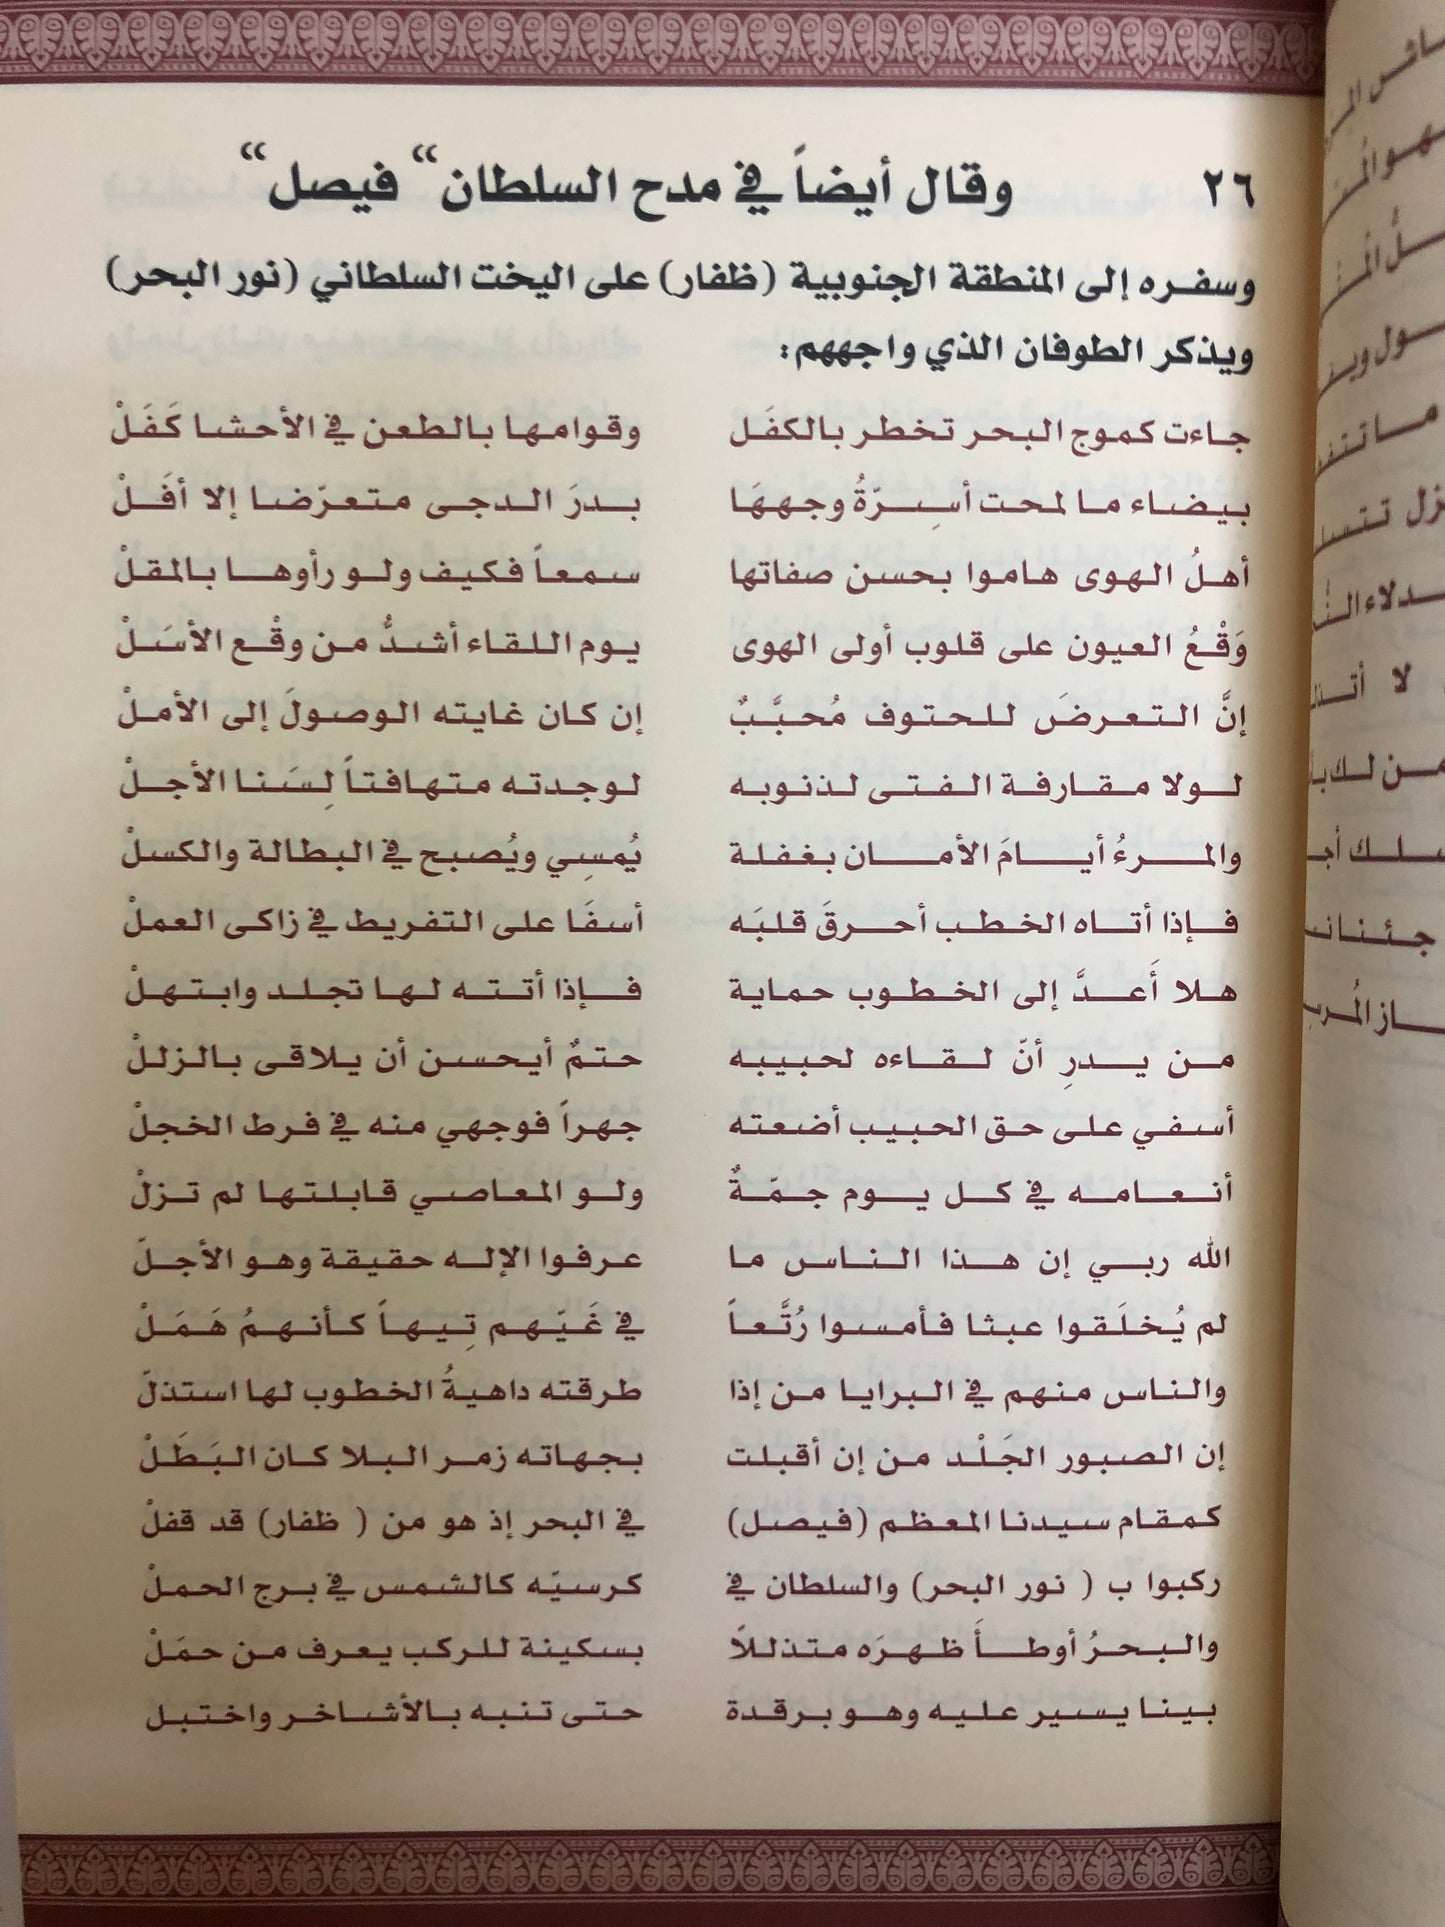 ٢٦ وقال أيضاً في مدح السلطان “فيصل“
وسفره إلى المنطقة الجنوبية (ظفار) على اليخت السلطاني (نور البحر)
ويذكر الطوفان الذي واجههم:
جاءت كموج البحر تخطر بالكفَل وقوامها بالطعن في الأحشا كَفَلْ
بيضاء ما لمحت أسِرّةُ وجههَا بدرَ الدجى متعرّضا إلا أفَلْ
أهلُ الهوى هاموا بحسن صفاتها سمعاً فكيف ولو رأوها بالمقلْ
وَقْعُ العيون على قلوب أولى الهوى يوم اللقاء أشدُّ من وقْع الأسَلْ
إنَّ التعرضَ للحتوف مُحبَّبٌ إن كان غايته الوصولَ إلى الأملْ
لولا مقارفة الفتى لذنوبه لوجدته متهافتاً لِسَنا الأجلْ
والمرءُ أيامَ الأمان بغفلة يُمسِي ويُصبح في البطالة والكسلْ
فإذا أتاه الخطب أحرقَ قلبَه أسفَا على التفريط في زاكى العملْ
هلا أَعدَّ إلى الخطوب حماية فإذا أتته لها تجلد وابتهلْ
من يدرِ أنّ لقاءه لحبيبه حتمٌ أيحسن أن يلاقى بالزللْ
أسفي على حق الحبيب أضعته جهراً فوجهي منه في فرط الخجلْ
أنعامه في كل يوم جمّةٌ ولو المعاصي قابلتها لم تزلْ
الله ربي إن هذا الناس ما عرفوا الإله حقيقة وهو الأجلّ
لم يُخلَقوا عبثا فأمسوا رُتَّعاً في غَيّهم تِيهاً كأنهمُ هَمَلْ
والناس منهم في البرايا من إذا طرقته داهيةُ الخطوب لها استذلّ
إن الصبور الجَلْد من إن أقبلت بجهاته زمر البلا كان البَطَلْ
كمقام سيدنا المعظم (فيصل) في البحر إذ هو من ( ظفار) قد قفلْ
ركبوا ب ( نور البحر) والسلطان في كرسيّه كالشمس في برج الحملْ
والبحرُ أوطأَ ظهرَه متذللاً بسكينة للركب يعرف من حمَلْ
بينا يسير عليه وهو برقدة حتى تنبه بالأشاخر واختبل